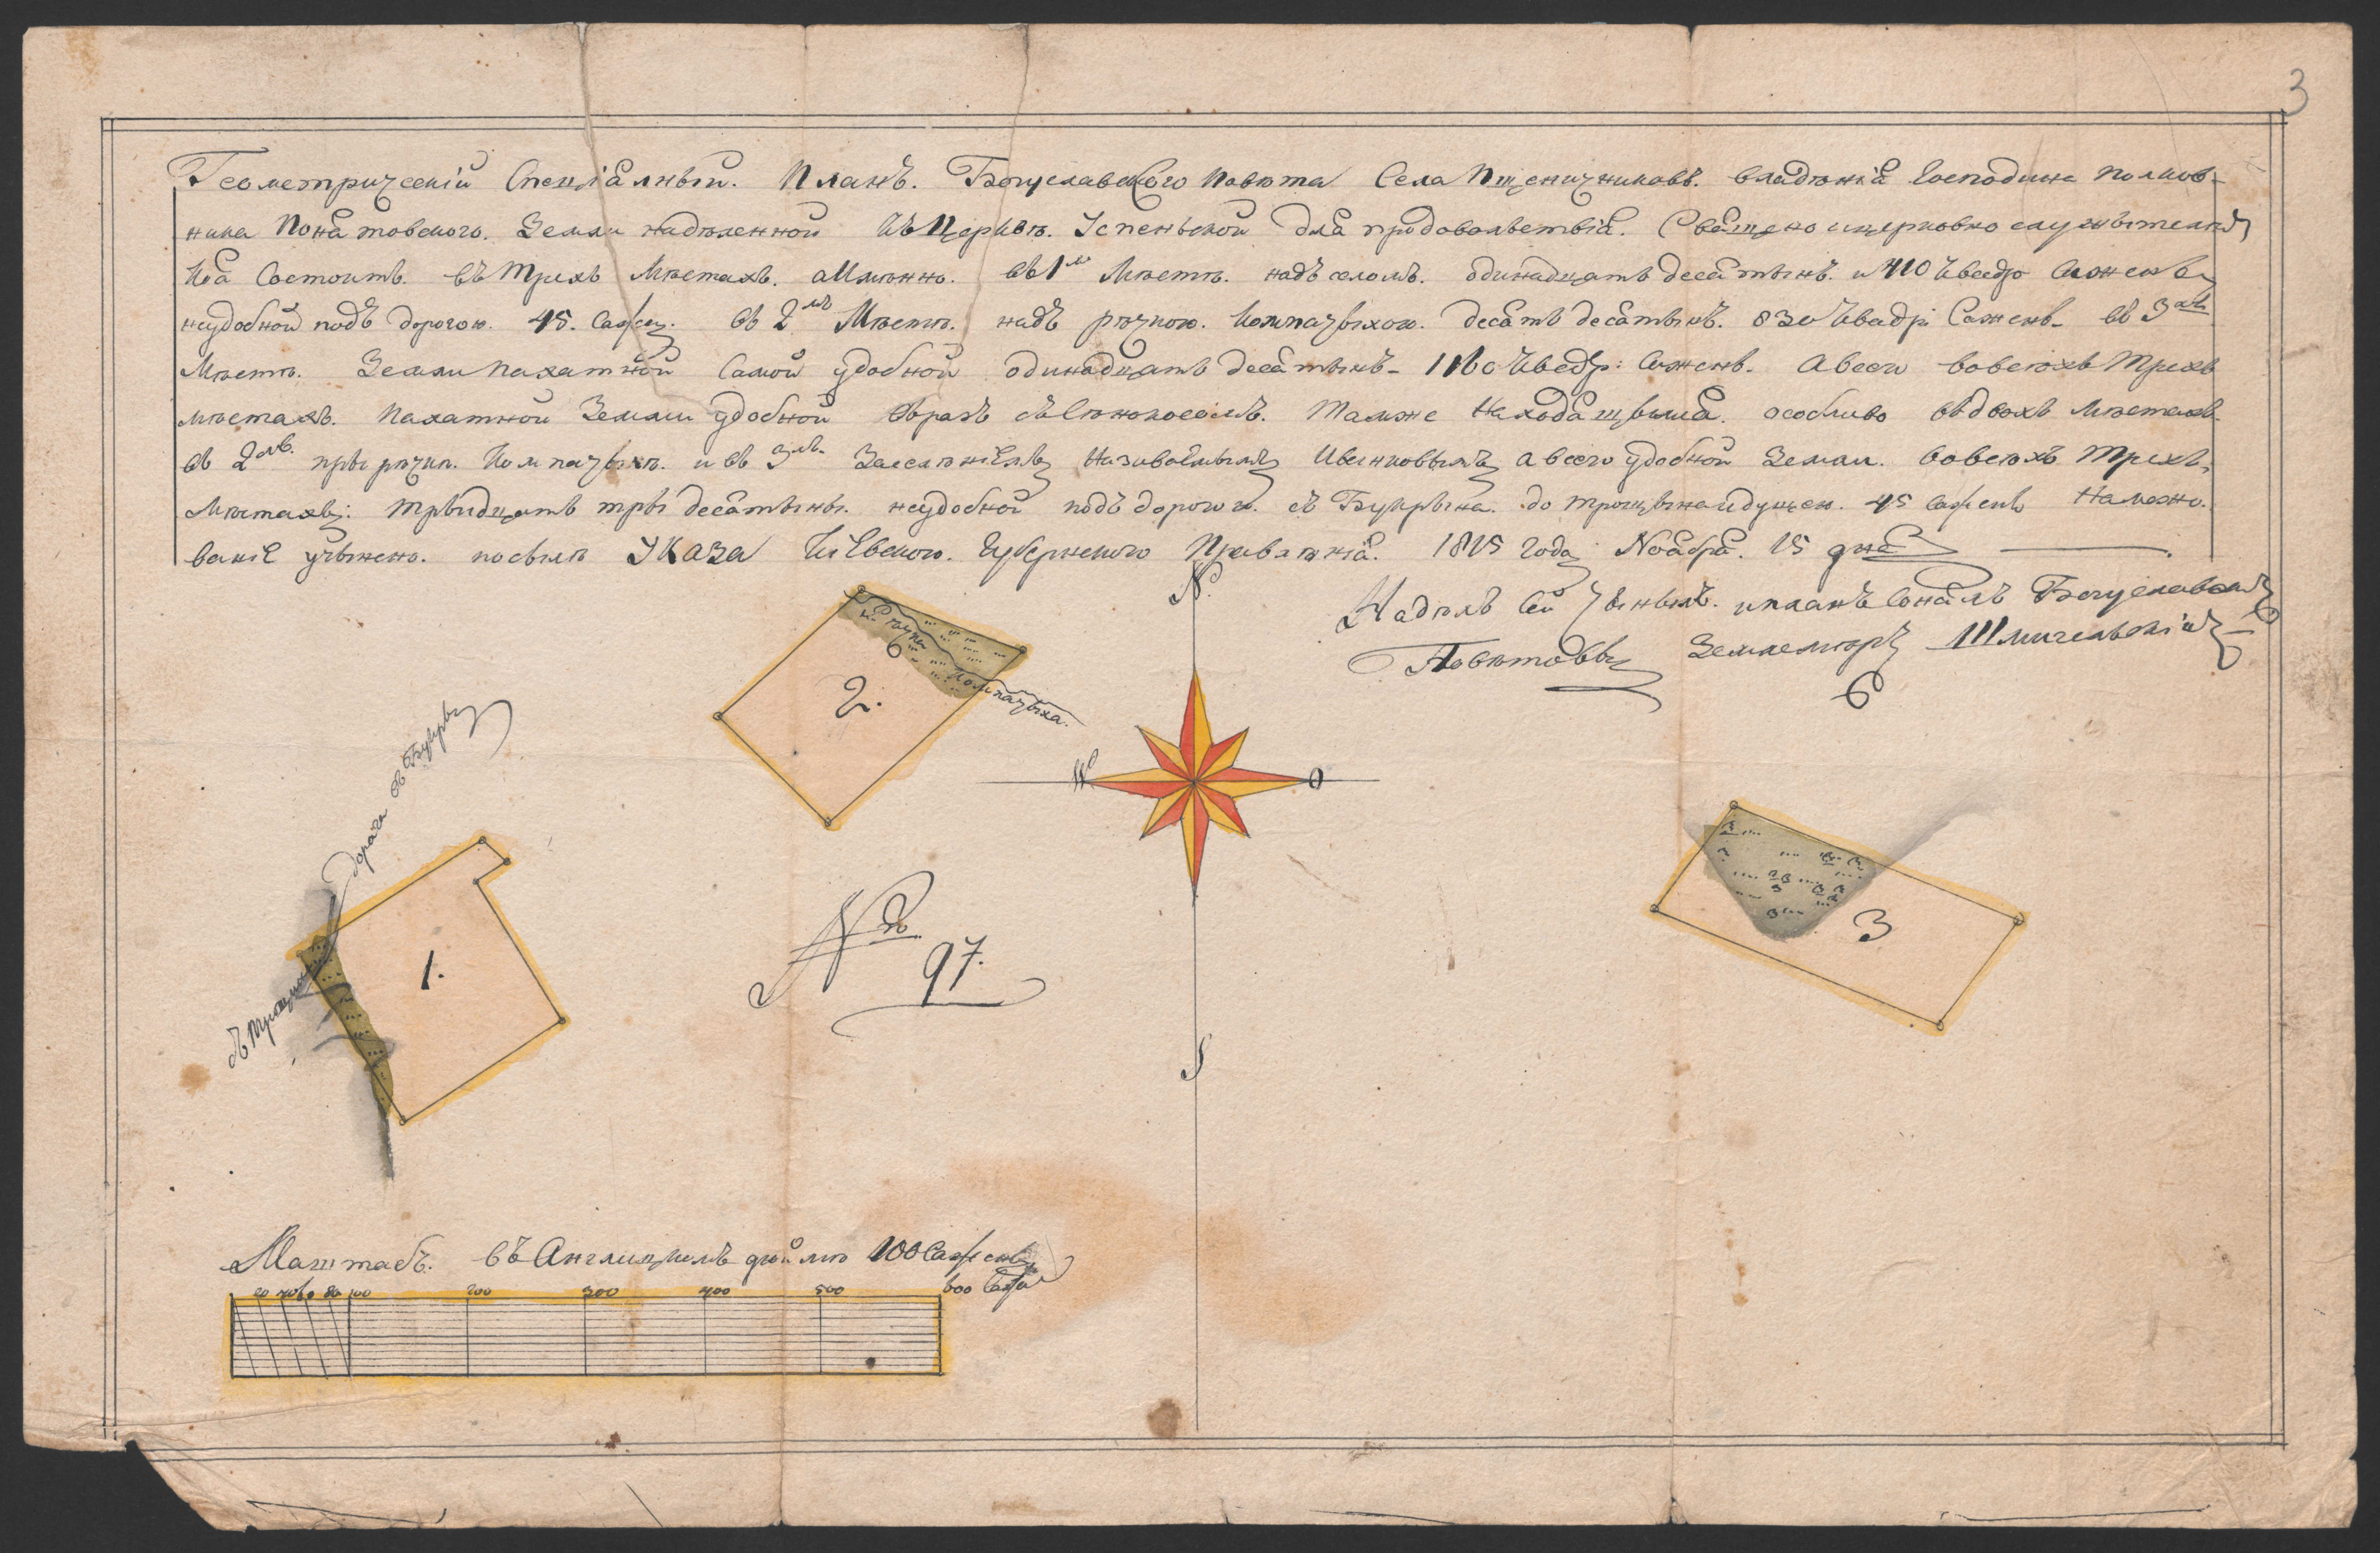 3
Геометрическій Спеціалный. Планъ. Богуславского Повета Села Пшеничниковъ. владѣнія Господина Полков-
ника Понятовского. Земли надѣленной къ Церквѣ. Успеньской для продовольствія. Священо ицерковно служителей
Коя Состоитъ. въ Трехъ Мѣстахъ. аИмѣнно. въ 1м Мѣстѣ. надъ селомъ. одинадцать десятынъ. и 410 Квадр Сажень
неудобной подъ дорогою. 45. Сажен. въ 2мъ Мѣстѣ. надъ рѣчкою. Компачыхою. десять десятынъ. 830 Квадр: Сажень. въ 3мъ
Мѣстѣ. Земли пахатной самой удобной одинадцать десятынъ. 1160 Квадр: Сажень. А всего вовсѣхъ Трехъ
мѣстахъ. пахатной Земли удобной въразъ съСѣнокосомъ. Тамже находящымся. особливо въдвохъ Мѣстахъ.
въ 2мъ. при рѣчкѣ. Компачыхѣ. и въ 3мъ. Называемымъ а всего удобной Земли. вовсѣхъ Трехъ
Мѣстахъ: Трыдцать три десятыны. неудобной подъ дорогою. съ Букрына. до Трощынаидущею. 45 Сажень Намежо-
ваніе учынено. посылѣ Указа Кіевского. Губернского Правлѣнія. 1815 года Ноября. 15 дня
Надѣлъ Сей учынылъ. ипланъ Снялъ Богуславскій
Повѣтовый Землемѣръ Шмигельскій
N.
W
O
S
Рѣчка
Компачыха.
2.
дорога въ Букрын
съ Трощына
1.
3
№
97.
Маштабъ. въ Англицкомъ дюймѣ 100 Сажень
20 40 60 80 100 200 300 400 500 600 Саже